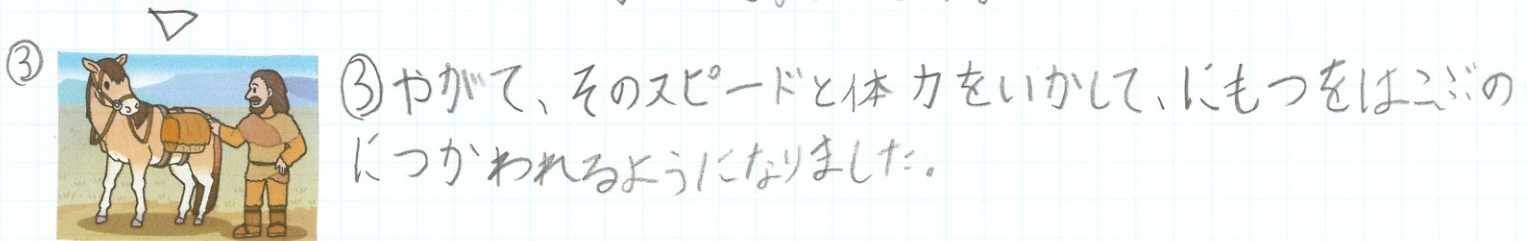 ③
③やがて、そのスピードと体力をいかして、にもつをはこぶの
につかわれるようになりました。